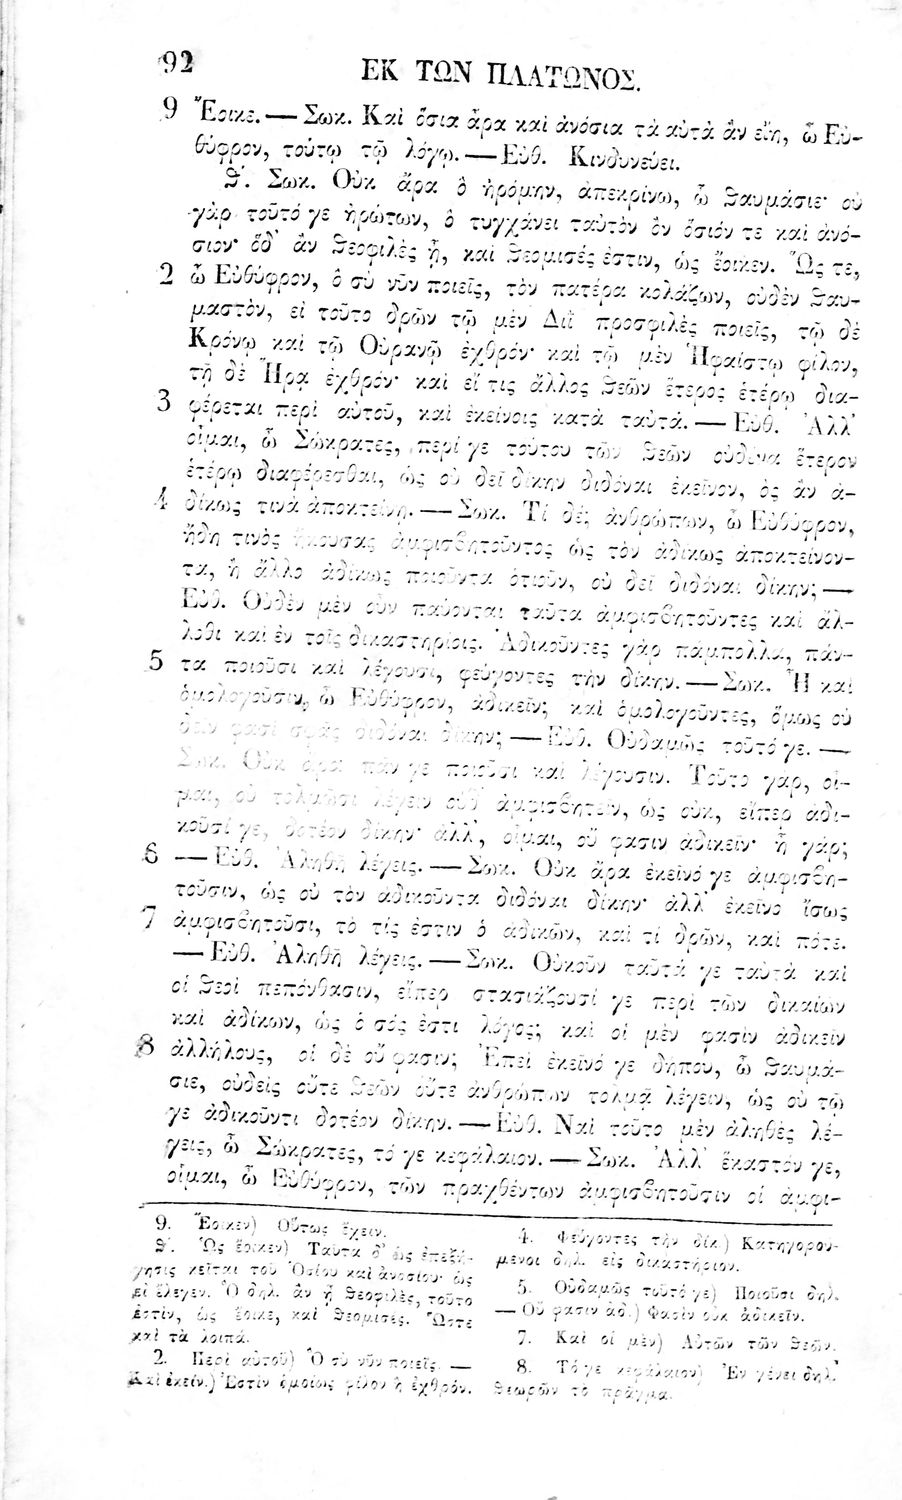 92
ΕΚ ΤΩΝ ΠΛΑΤΩΝΟΣ.
9 Ἔοικε. — Σωκ. Καὶ ὅσια ἄρα καὶ ἀνόσια τὰ αὐτὰ ἂν εἴη, ὦ Εὐ-
θύφρον, τούτῳ τῷ λόγῳ. — Εὐθ. Κινδυνεύει.
Θ΄. Σωκ. Οὐκ ἄρα ὃ ἠρόμην, ἀπεκρίνω, ὦ θαυμάσιε· οὐ
γὰρ τοῦτό γε ἠρώτων, ὃ τυγχάνει ταὐτὸν ὂν ὅσιόν τε καὶ ἀνό-
σιον· ὃδ᾽ ἂν θεοφιλὲς ᾖ, καὶ θεομισές ἐστιν, ὡς ἔοικεν. Ὥς τε,
2 ὦ Εὐθύφρον, ὃ σὺ νῦν ποιεῖς, τὸν πατέρα κολάζων, οὐδὲν θαυ-
μαστὸν, εἰ τοῦτο δρῶν τῷ μὲν Διῒ προσφιλὲς ποιεῖς, τῷ δὲ
Κρόνῳ καὶ τῷ Οὐρανῷ ἐχθρόν· καὶ τῷ μὲν Ἡφαίστῳ φίλον,
τῇ δὲ Ἥρᾳ ἐχθρόν· καὶ εἴ τις ἄλλος θεῶν ἕτερος ἑτέρῳ δια-
3 φέρεται περὶ αὐτοῦ, καὶ ἐκείνοις κατὰ ταὐτά. — Εὐθ. Ἀλλ᾽
οἶμαι, ὦ Σώκρατες, περί γε τούτου τῶν θεῶν οὐδένα ἕτερον
ἑτέρῳ διαφέρεσθαι, ὡς οὐ δεῖ δίκην διδόναι ἐκεῖνον, ὃς ἂν ἀ-
4 δίκως τινὰ ἀποκτείνῃ. — Σωκ. Τί δέ; ἀνθρώπων, ὦ Εὐθύφρον,
ἤδη τινὸς ἤκουσας ἀμφισβητοῦντος ὡς τὸν ἀδίκως ἀποκτείνον-
τα, ἢ ἄλλο ἀδίκως ποιοῦντα ὁτιοῦν, οὐ δεῖ διδόναι δίκην; —
Εὐθ. Οὐδὲν μὲν οὖν παύονται ταῦτα ἀμφισβητοῦντες καὶ ἄλ-
λοθι καὶ ἐν τοῖς δικαστηρίοις. Ἀδικοῦντες γὰρ πάμπολλα, πάν-
5 τα ποιοῦσι καὶ λέγουσι, φεύγοντες τὴν δίκην. — Σωκ. Ἦ καὶ
ὁμολογοῦσιν, ὦ Εὐθύφρον, ἀδικεῖν; καὶ ὁμολογοῦντες, ὅμως οὐ
δεῖν φασὶ σφᾶς διδόναι δίκην; — Εὐθ. Οὐδαμῶς τοῦτό γε. —
Σωκ. Οὐκ ἄρα πάν γε ποιοῦσι καὶ λέγουσιν. Τοῦτο γὰρ, οἶ-
μαι, οὐ τολμῶσι λέγειν οὐδ᾽ ἀμφισβητεῖν, ὡς οὐκ, εἴπερ ἀδι-
κοῦσί γε, δοτέον δίκην· ἀλλ᾽, οἶμαι, οὔ φασιν ἀδικεῖν· ἦ γάρ;
6 — Εὐθ. Ἀληθῆ λέγεις. — Σωκ. Οὐκ ἄρα ἐκεῖνό γε ἀμφισβη-
τοῦσιν, ὡς οὐ τὸν ἀδικοῦντα διδόναι δίκην· ἀλλ᾽ ἐκεῖνο ἴσως
7 ἀμφισβητοῦσι, τὸ τίς ἐστιν ὁ ἀδικῶν, καὶ τί δρῶν, καὶ πότε.
— Εὐθ. Ἀληθῆ λέγεις. — Σωκ. Οὐκοῦν ταῦτά γε ταὐτὰ καὶ
οἱ θεοὶ πεπόνθασιν, εἴπερ στασιάζουσί γε περὶ τῶν δικαίων
καὶ ἀδίκων, ὡς ὁ σός ἐστι λόγος; καὶ οἱ μέν φασὶν ἀδικεῖν
8 ἀλλήλους, οἱ δὲ οὔ φασιν; Ἐπεὶ ἐκεῖνό γε δήπου, ὦ θαυμά-
σιε, οὐδεὶς οὔτε θεῶν οὔτε ἀνθρώπων τολμᾷ λέγειν, ὡς οὐ τῷ
γε ἀδικοῦντι δοτέον δίκην. — Εὐθ. Ναὶ τοῦτο μὲν ἀληθὲς λέ-
γεις, ὦ Σώκρατες, τό γε κεφάλαιον. — Σωκ. Ἀλλ᾽ ἕκαστόν γε,
οἶμαι, ὦ Εὐθύφρον, τῶν πραχθέντων ἀμφισβητοῦσιν οἱ ἀμφι-
9. Ἔοικεν) Οὕτως ἔχειν.
Θ΄. Ὡς ἔοικεν) Ταῦτα δ᾽ ὡς ἐπεξή-
γησις κεῖται τοῦ Ὁσίου καὶ ἀνοσίου· ὡς
εἰ ἔλεγεν. Ὃ δηλ. ἂν ᾖ θεοφιλὲς, τοῦτο
ἐστὶν, ὡς ἔοικε, καὶ θεομισές. Ὥστε
καὶ τὰ λοιπά.
2. Περὶ αὐτοῦ) Ὃ σὺ νῦν ποιεῖς. —
Καὶ ἐκείν.) Ἐστὶν ὁμοίως φίλον ἢ ἐχθρόν.
4. Φεύγοντες τὴν δίκ.) Κατηγορού-
μενοι δηλ. εἰς δικαστήριον.
5. Οὐδαμῶς τοῦτό γε) Ποιοῦσι δηλ.
— Οὔ φασιν ἀδ.) Φασὶν οὐκ ἀδικεῖν.
7. Καὶ οἱ μὲν) Αὐτῶν τῶν θεῶν.
8. Τό γε κεφάλαιον) Ἐν γένει δηλ.
θεωρῶν τὸ πρᾶγμα.